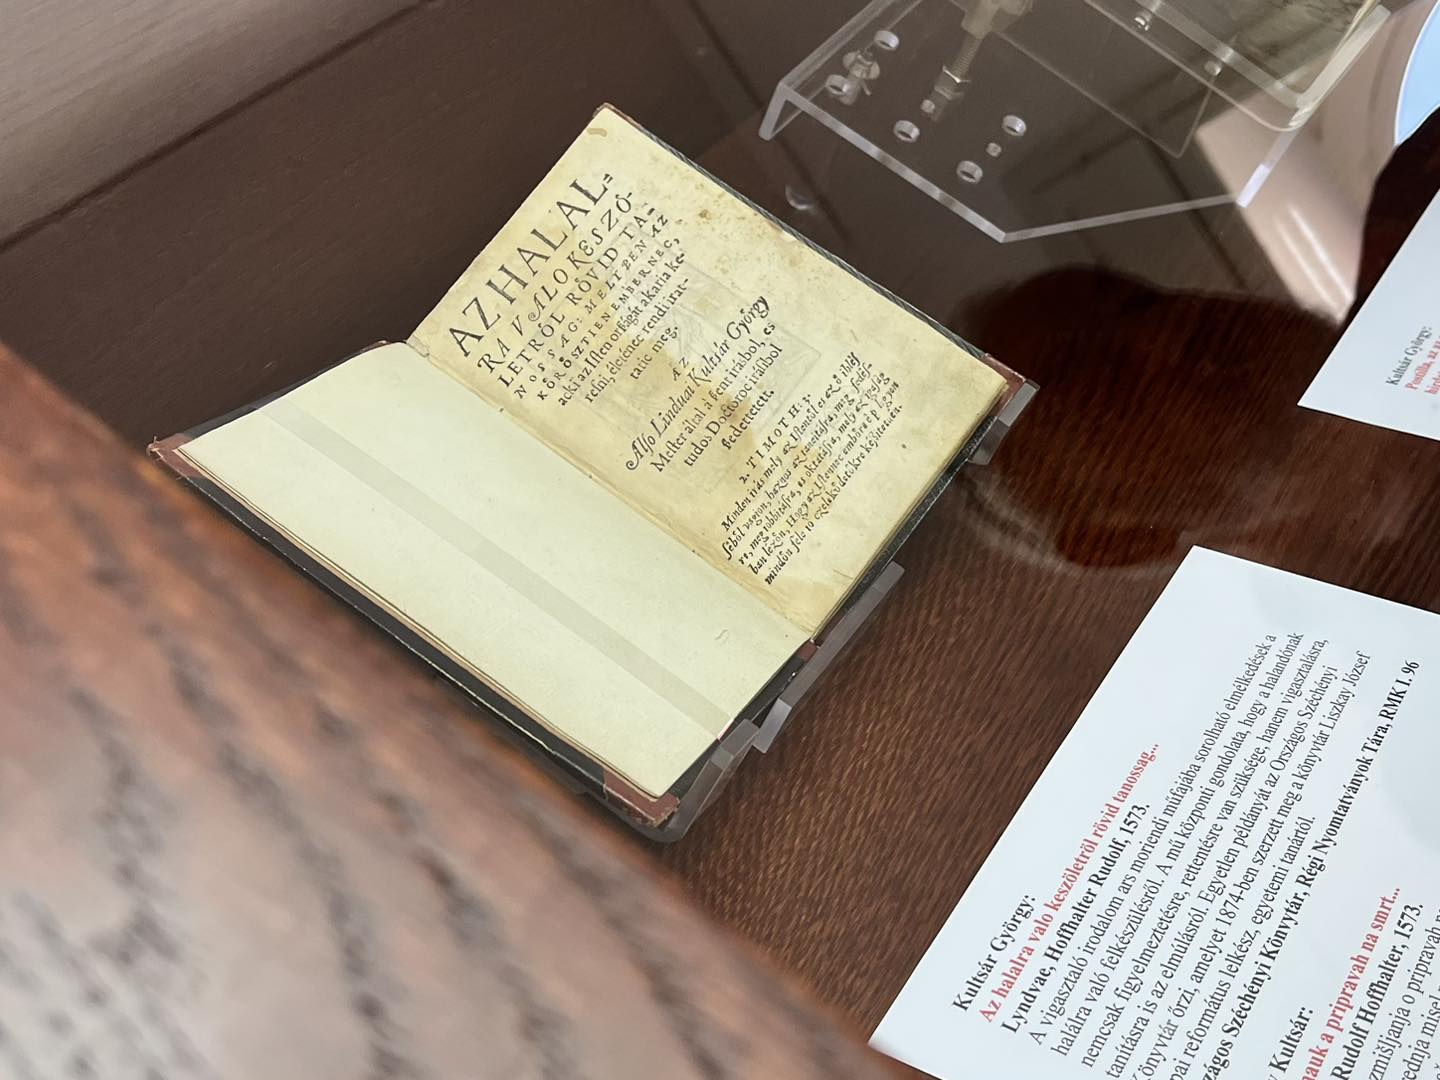 AZ HALAL=
RA VALO KESZŐ-
LETRŐL RŐVID TA-
NOSSAG: MELTBEN AZ
KŐRŐSZTIEN EMBERNEC,
acki az Isten orsságát akaria ke-
resni, életénec rendi irat-
tatic meg.
AZ
Also Linduai Kultsar György
Mester által à szent irásbol, es
tudos Doctoroc irásibol
szedettetett.
2. TIMOTH: 3.
Minden irás mely az Istennél es az ő ihlés
séből vagyon, haznos az tanitásra, meg
re, meg iobbitásra, es oktatásra, mely az igasság
ban lezőn, Hogy az Istennec embőre ép legyen
mindőn fele io czelekődetőkre késźitetőn.
Kultsár György:
Postilla, az az
Kultsár György:
Az halalra valo keszöletröl rövid tanossag...
Lyndvae, Hoffhalter Rudolf, 1573.
A vigasztaló irodalom ars moriendi műfajába sorolható elmélkedések a
halálra való felkészülésről. A mű központi gondolata, hogy a halandónak
nemcsak figyelmeztetésre, rettentésre van szüksége, hanem vigasztalásra,
tanításra is az elmúlásról. Egyetlen példányát az Országos Széchényi
Könyvtár őrzi, amelyet 1874-ben szerzett meg a könyvtár Liszkay József
pai református lelkész, egyetemi tanártól.
zágos Széchényi Könyvtár, Régi Nyomtatványok Tára, RMK I. 96
Kultsár:
nauk a pripravah na smrt...
Rudolf Hoffhalter, 1573.
zmišljanja o pripravah